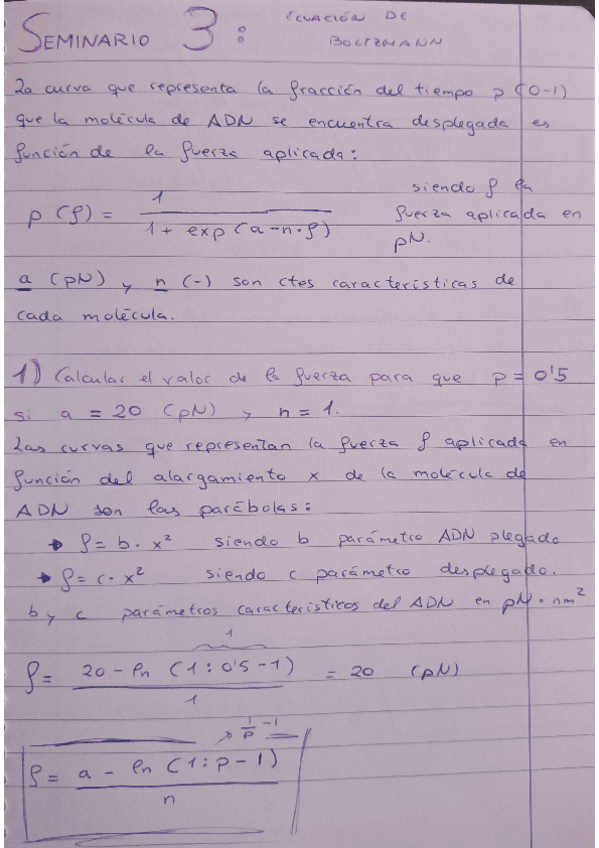 SEMINARIO 3: ECUACIÓN DE
BOLTZMANN
La curva que representa la fracción del tiempo p (0-1)
que la molécula de ADN se encuentra desplegada es
función de la fuerza aplicada:
p (f) = 1 / 1 + exp (a-n·f) siendo f la
fuerza aplicada en
pN.
a (pN) y n (-) son ctes características de
cada molécula.
1) Calcular el valor de la fuerza para que p = 0'5
si a = 20 (pN) y n = 1.
Las curvas que representan la fuerza f aplicada en
función del alargamiento x de la molécula de
ADN son las parábolas:
→ f = b · x² siendo b parámetro ADN plegado
→ f = c · x² siendo c parámetro desplegado.
b y c parámetros característicos del ADN en pN · nm²
1
f = 20 - ln (1 : 0'5 - 1) / 1 = 20 (pN)
→ 1/p -1
f = a - ln (1 : p - 1) / n